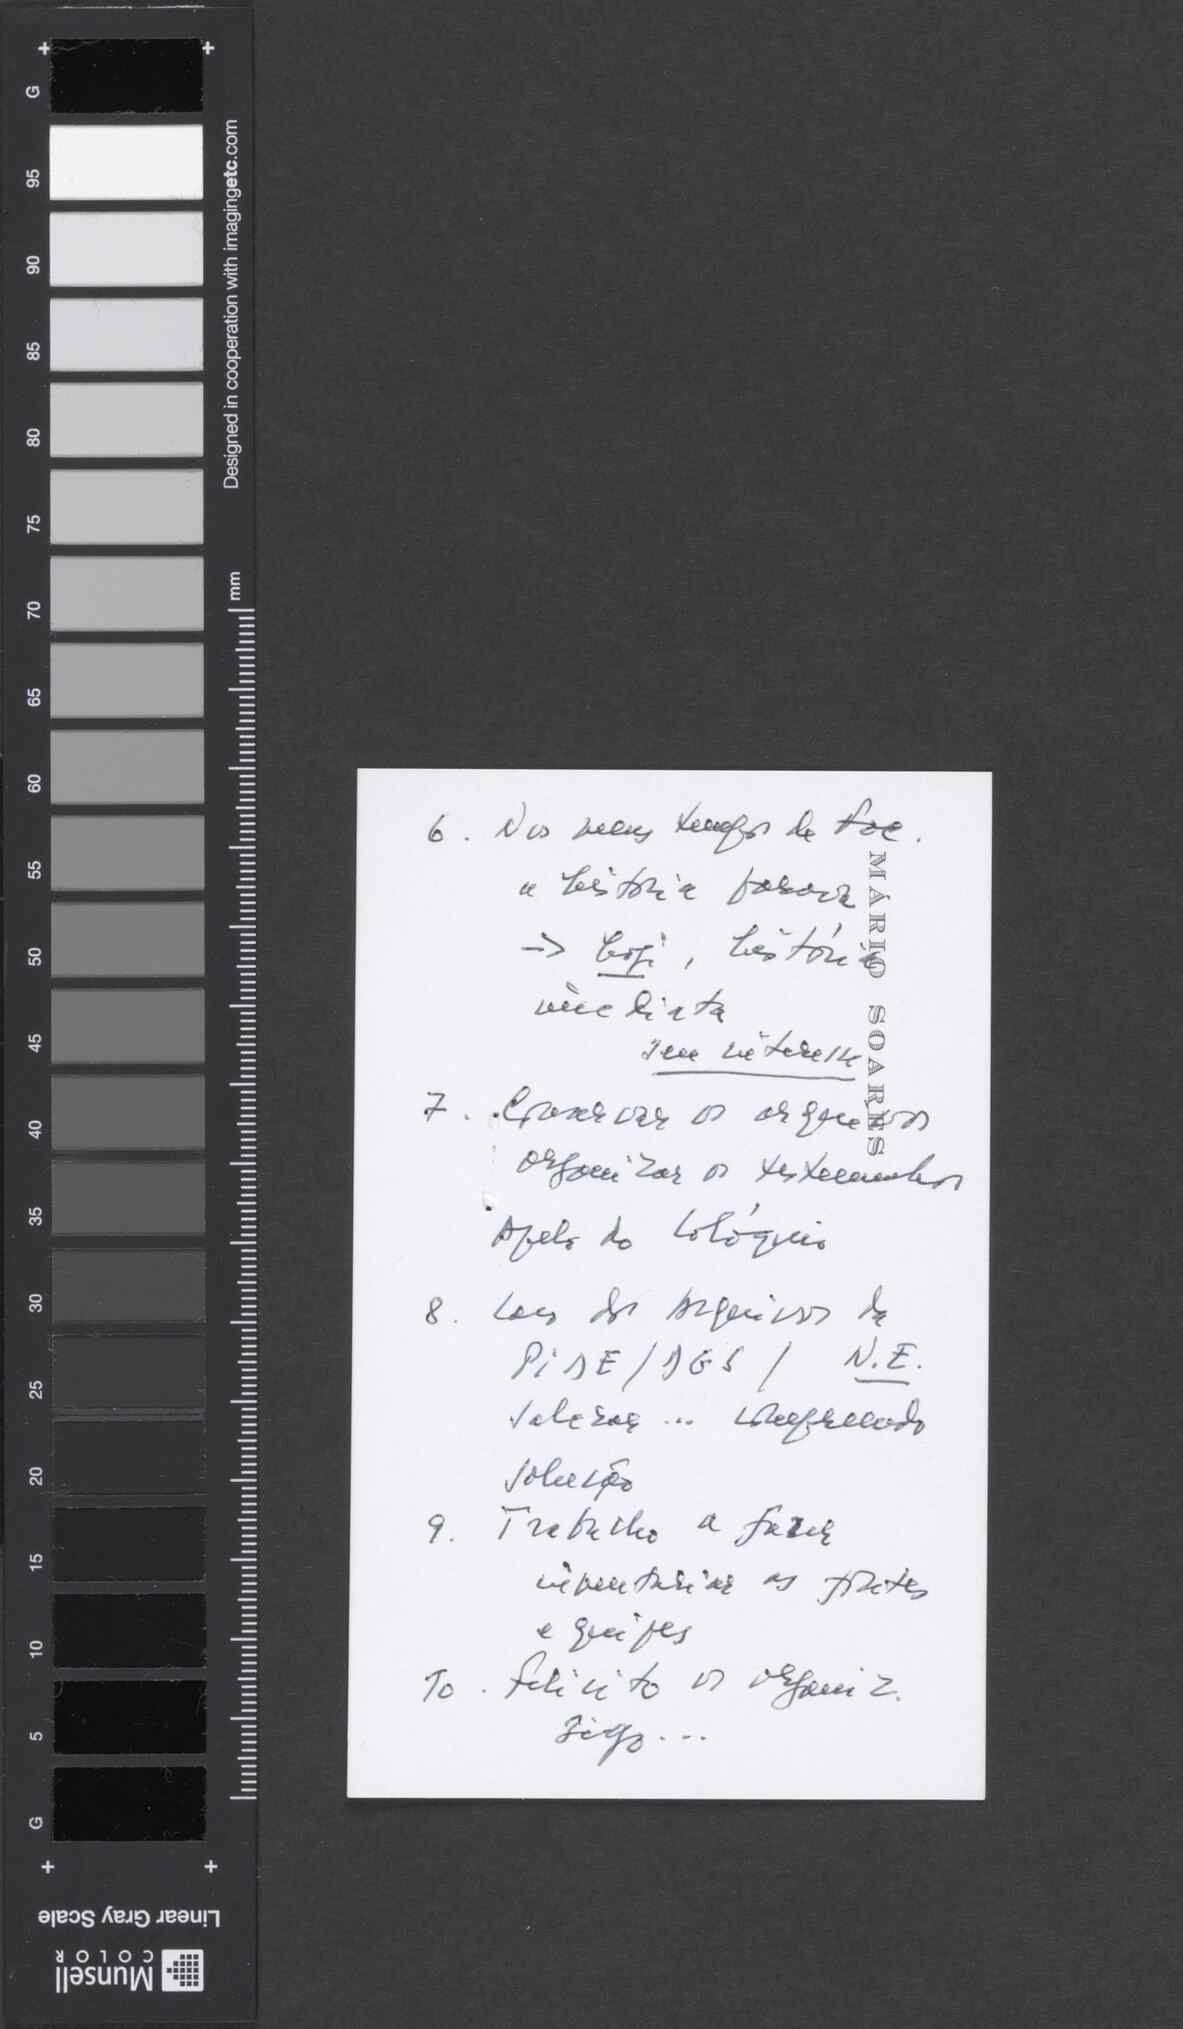 6. Nos meus tempos de Fac.
a história parava
-> hoje, história
imediata
sem interesse
7. Conservar os arquivos
organizar os testemunhos
Apelo do Colóquio
8. Caso dos Arquivos da
PIDE/DGS / N.E.
Salazar ...
solução
9. Trabalho a fazer
inventariar as fontes
equipes
10. Felicito os organiz.
...
MÁRIO SOARES
G
95
90
85
80
75
70
65
60
55
50
45
40
35
30
25
20
15
10
5
G
Designed in cooperation with imagingetc.com
mm
Linear Gray Scale
Munsell
COLOR